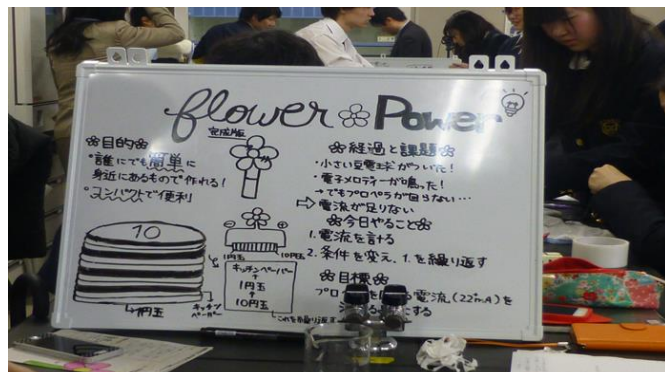 flower Power
完成版
目的
・誰にでも簡単に
身近にあるもので作れる!
・コンパクトで便利
10
1円玉
キッチンペーパー
− +
1円玉 10円玉
キッチンペーパー
+
1円玉
+
10円玉
これを繰り返す
経過と課題
・小さい豆電球がついた!
・電子メロディーが鳴った!
→でもプロペラが回らない…
⇨電流が足りない
今日やること
1. 電流を計る
2. 条件を変え、1. を繰り返す
目標
プロ 電流(22mA)を
にする